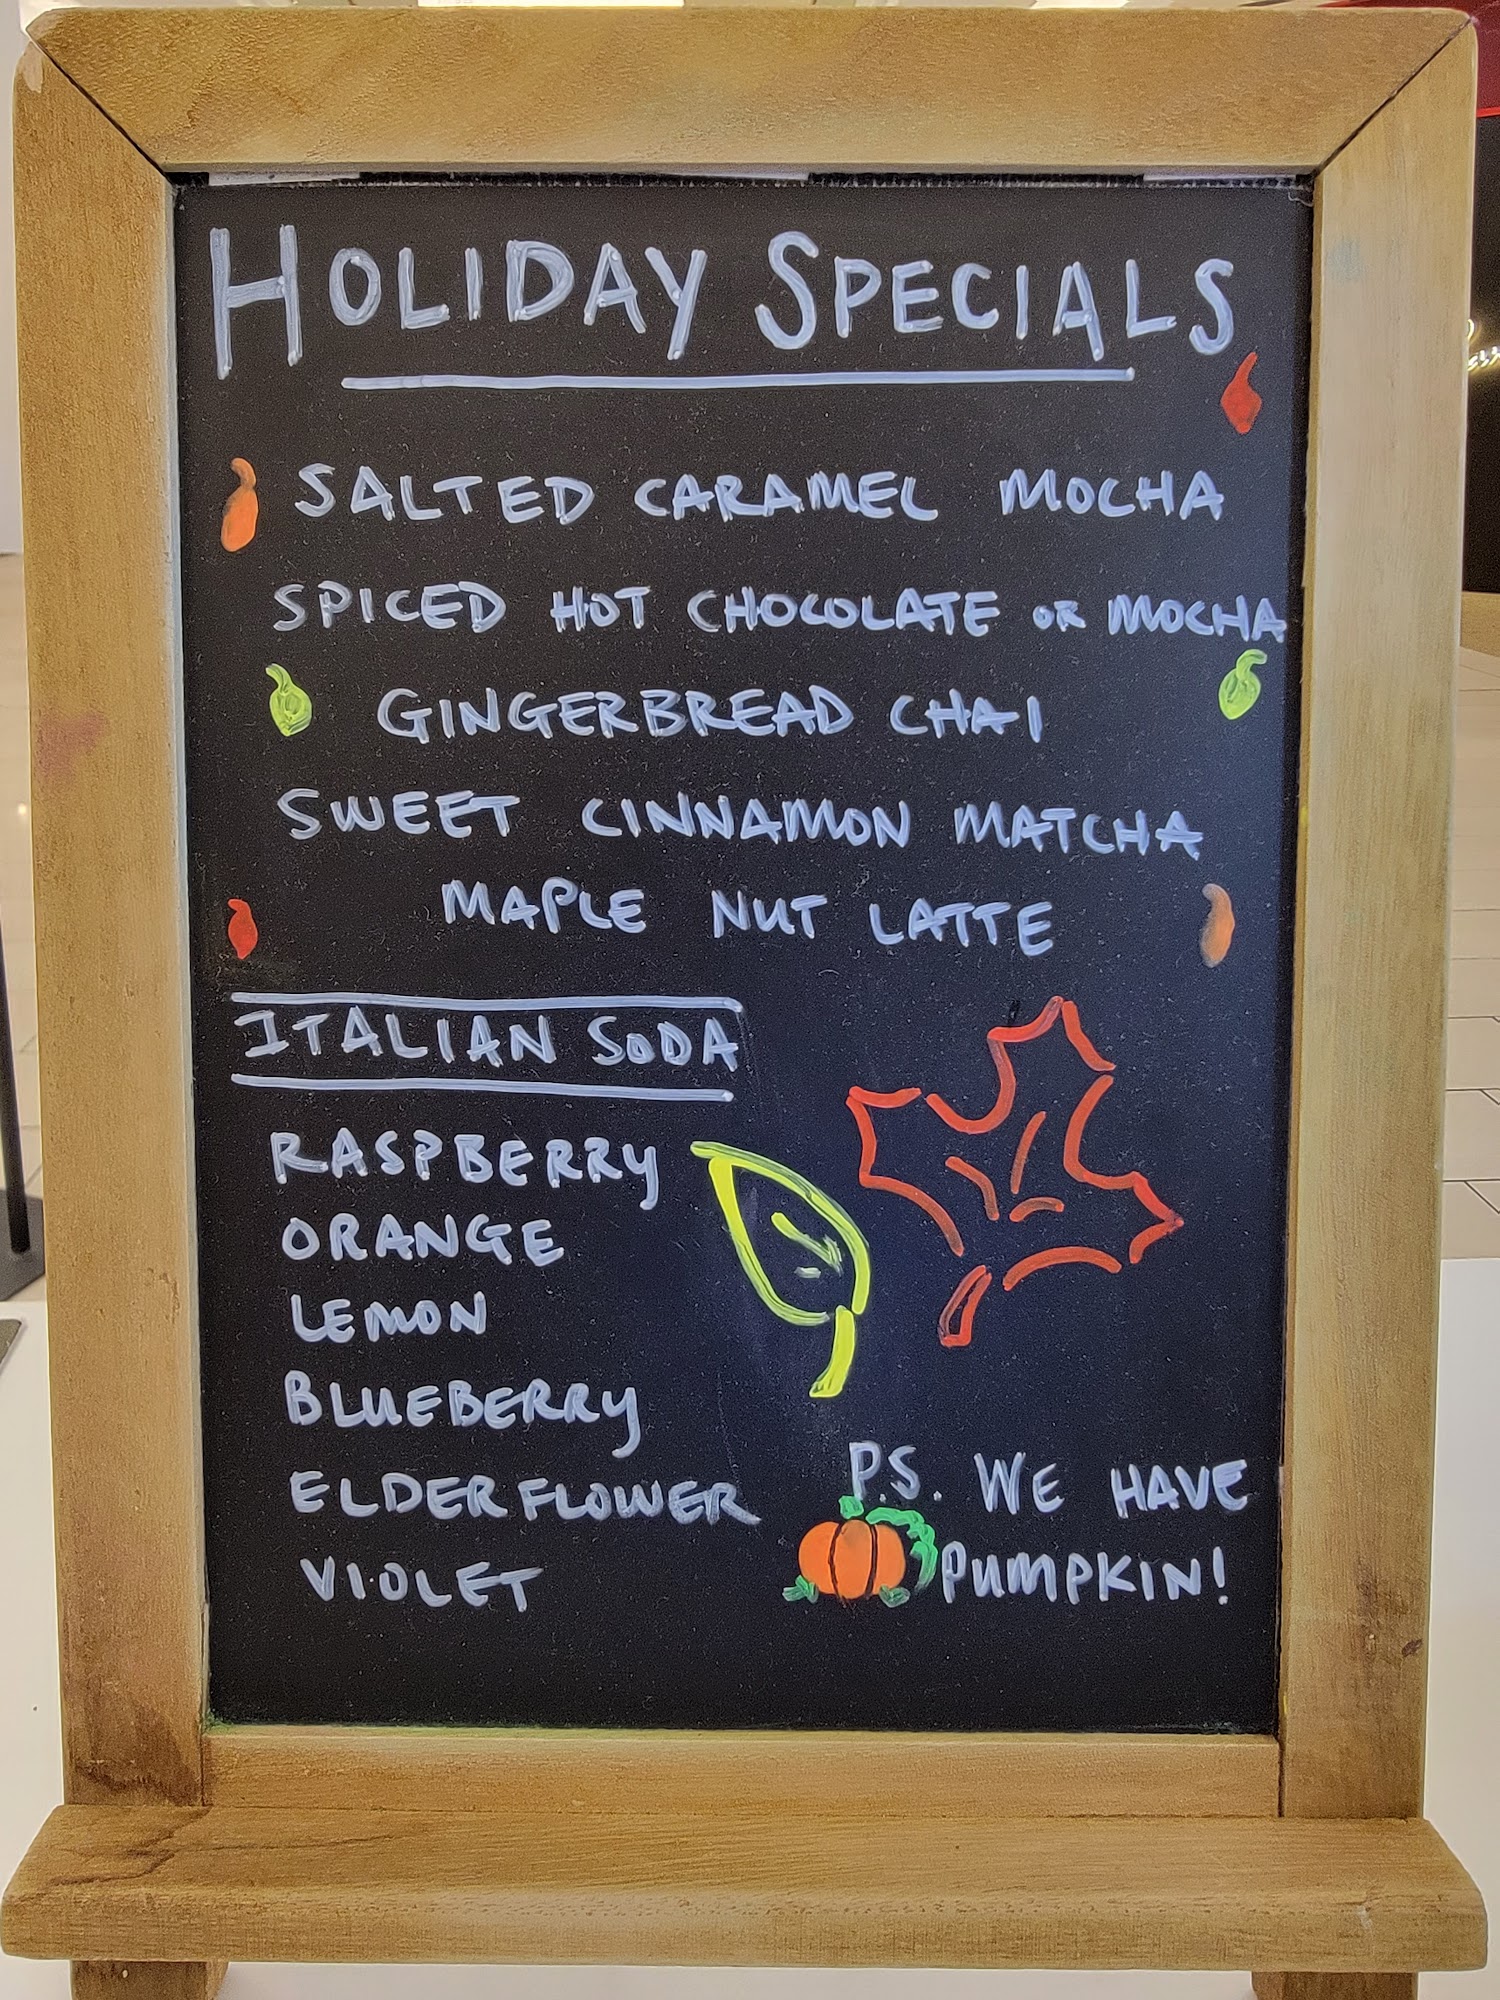 HOLIDAY SPECIALS
SALTED CARAMEL MOCHA
SPICED HOT CHOCOLATE OR MOCHA
GINGERBREAD CHAI
SWEET CINNAMON MATCHA
MAPLE NUT LATTE
ITALIAN SODA
RASPBERRY
ORANGE
LEMON
BLUEBERRY
ELDERFLOWER
VIOLET
P.S. WE HAVE
PUMPKIN!